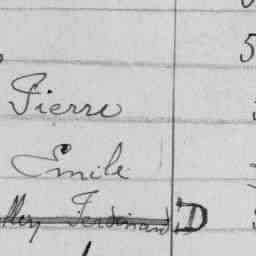 5
Pierre
Emile
Ferdinand D